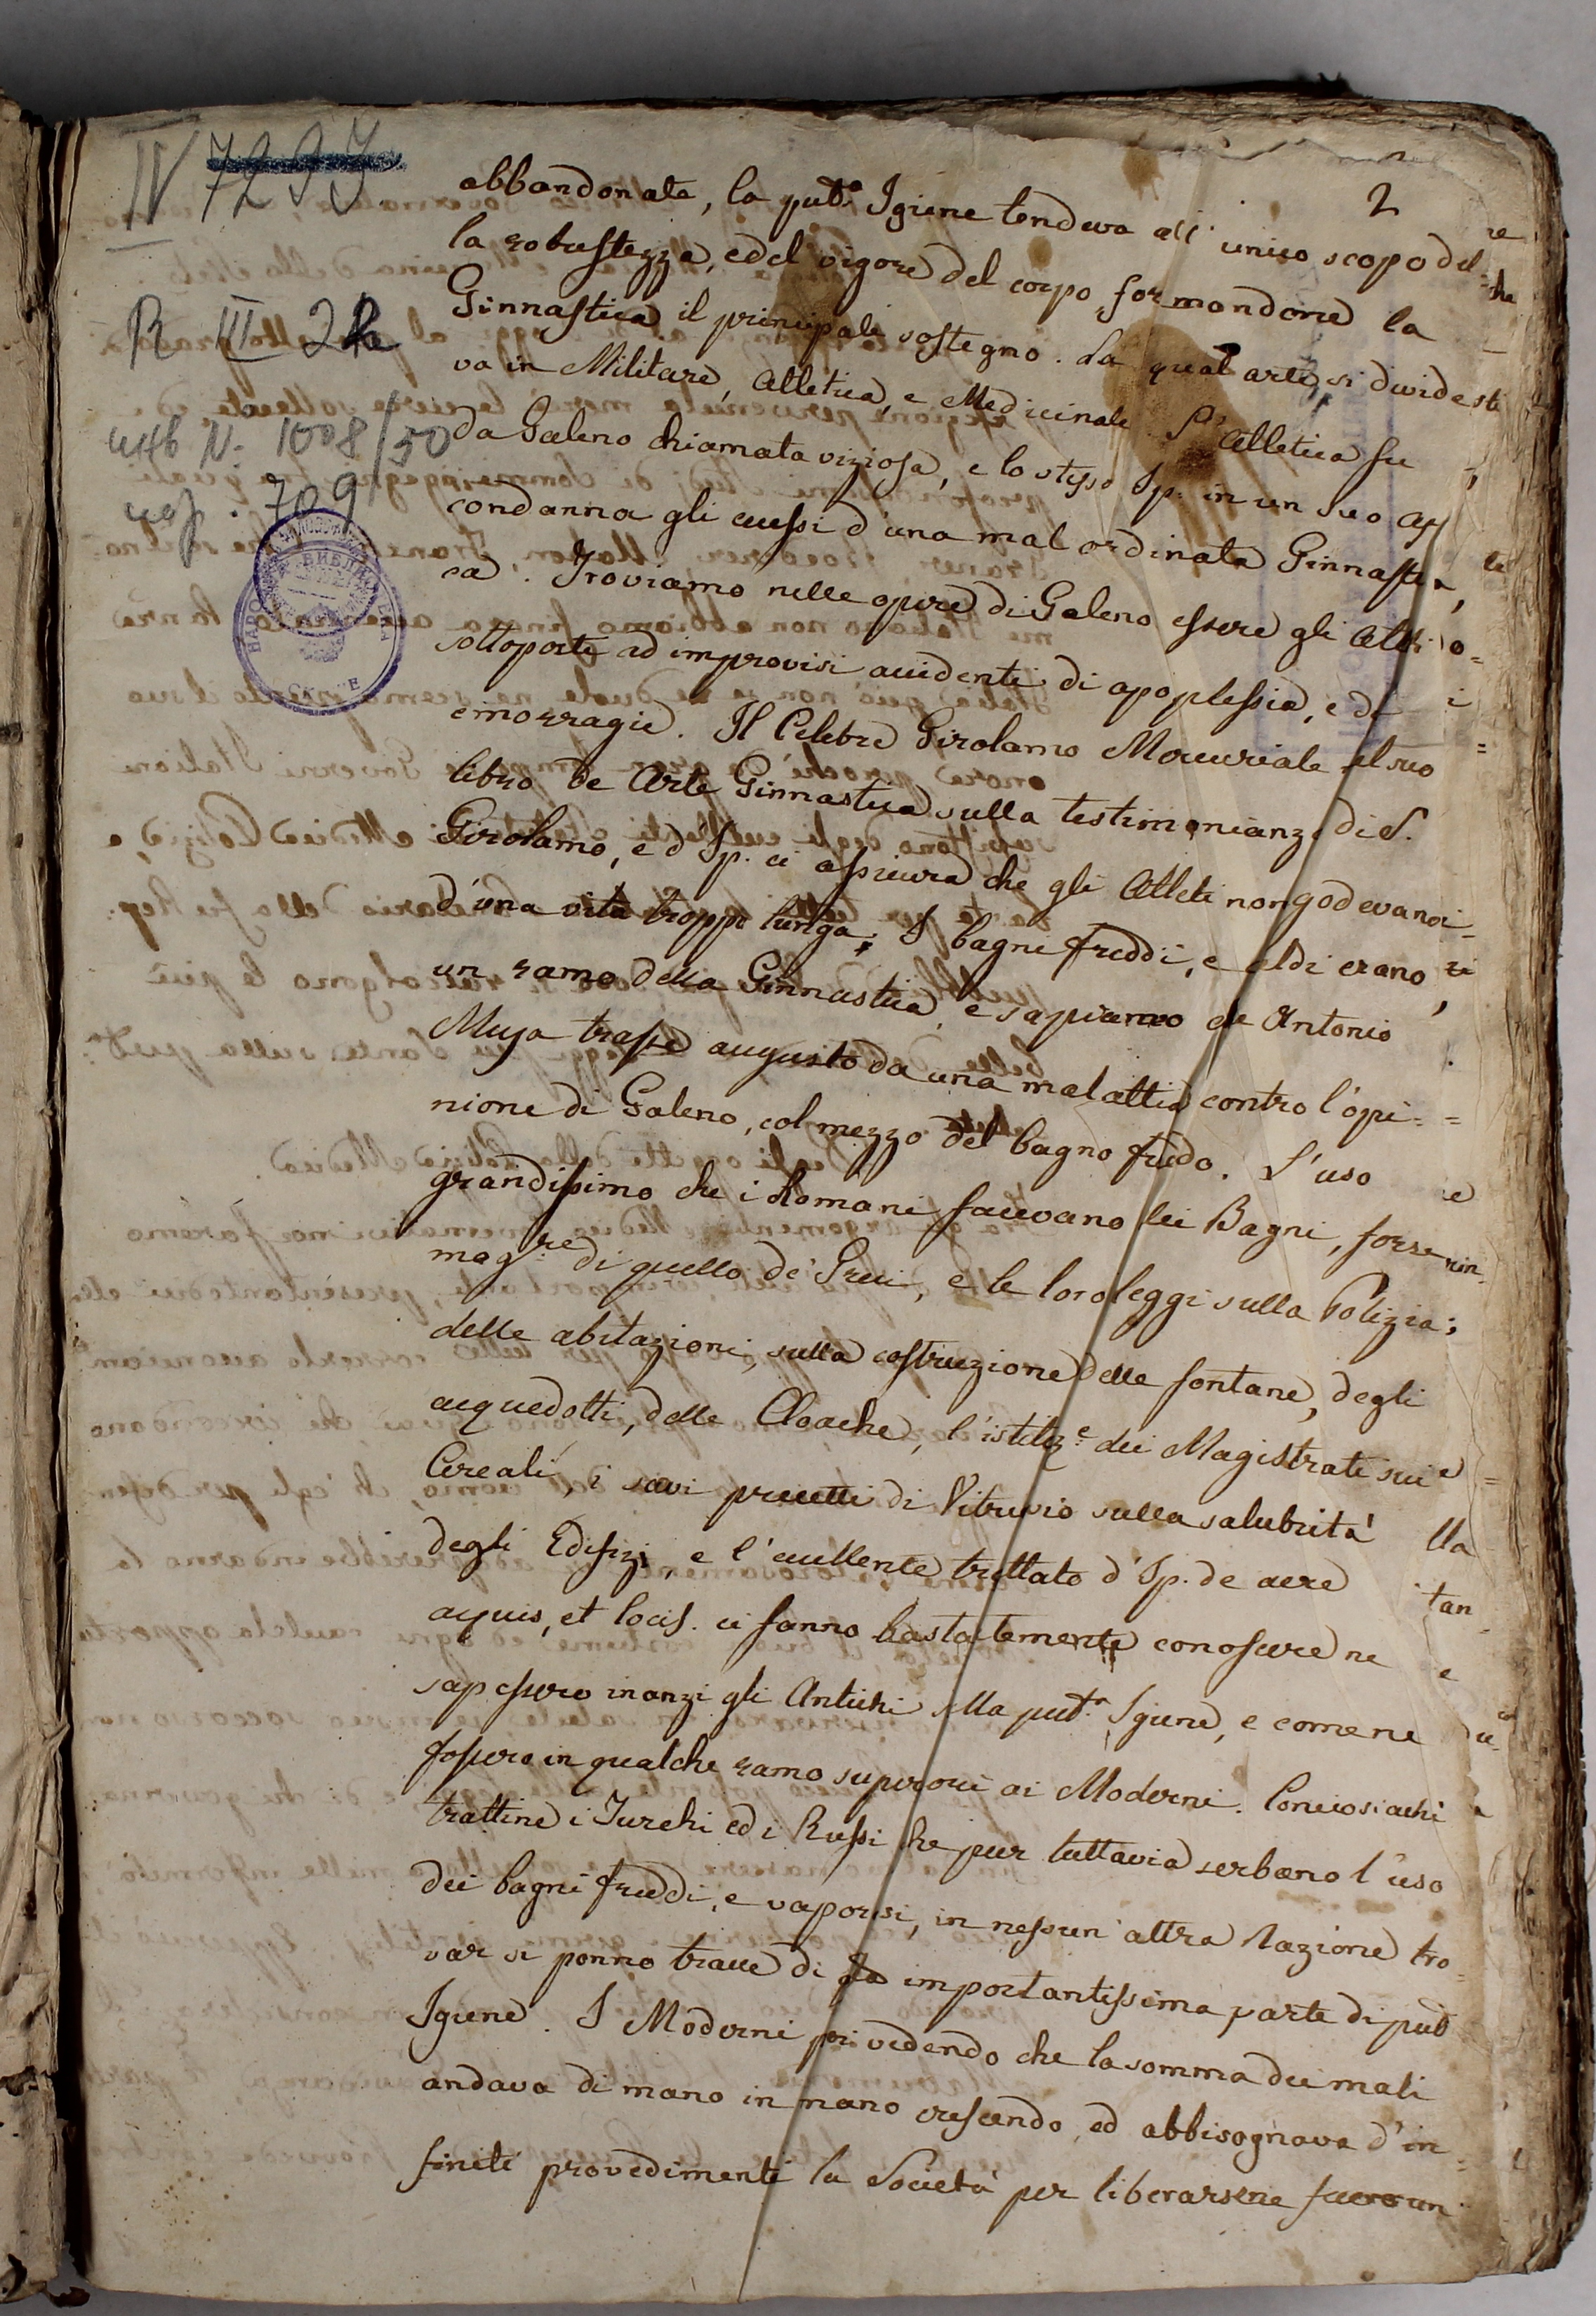 2
IV 7295
R III 2he
инв N: 1008/50
иср. 709
НАРОДНА
abbandonata, la pubb.ª Igiene tendeva all' unico scopo del
la robustezza, ed el vigore del corpo, formandone la
Ginnastica il principale sostegno. La qual arte si divides
va in Militare, Atletica, e Medicinale. L'Atletica fu
da Galeno chiamata viziosa, e lo stesso Ip: in un suo af
condanna gli eccessi d'una mal ordinata Ginnasti
ca. Troviamo nelle opere di Galeno essere gli Atleti
sottoposti ad improvisi accidenti di apoplessia, ed
emorragie. Il Celebre Girolamo Mercuriale nel suo
libro De Arte Gimnastica sulla testimonianza di S.
Girolamo, ed Ip: ci assicura che gli Atleti non godevano
d'una vita troppo lunga. I bagni freddi, e caldi erano
un ramo della Gimnastica, e sappiamo che Antonio
Musa trasse augusto da una malattia contro l'opi=
nione di Galeno, col mezzo del bagno freddo. L'uso
grandissimo che i Romani facevano dei Bagni, forse
maggiore di quello dei Greci, e le loro leggi sulla Polizia
delle abitazioni, sulla costruzione delle fontane, degli
acquedotti, delle Cloache, l'istituz.e dei Magistrati sui
Cereali, i savi precetti di Vitruvio sulla salubrità
degli Edifizi, e l'eccellente trattato d'Ip. de aere
aquis, et locis. ci fanno bastantemente conoscere ne
sapessero inanzi gli Antichi sulla pubb.ª Igiene, e come ne
fossero in qualche ramo superiori ai Moderni. Conciosiachè
trattine i Turchi ed i Russi che pur tuttavia serbano l'uso
dei bagni freddi, e vaporosi, in nessun' altra Nazione tro=
var si ponno tracce di importantissima parte di pubb
Igiene. I Moderni provedendo che la somma dei mali
andava di mano in mano crescendo, ad abbisognava d'in=
finiti provedimenti la Società per liberarsene facevan